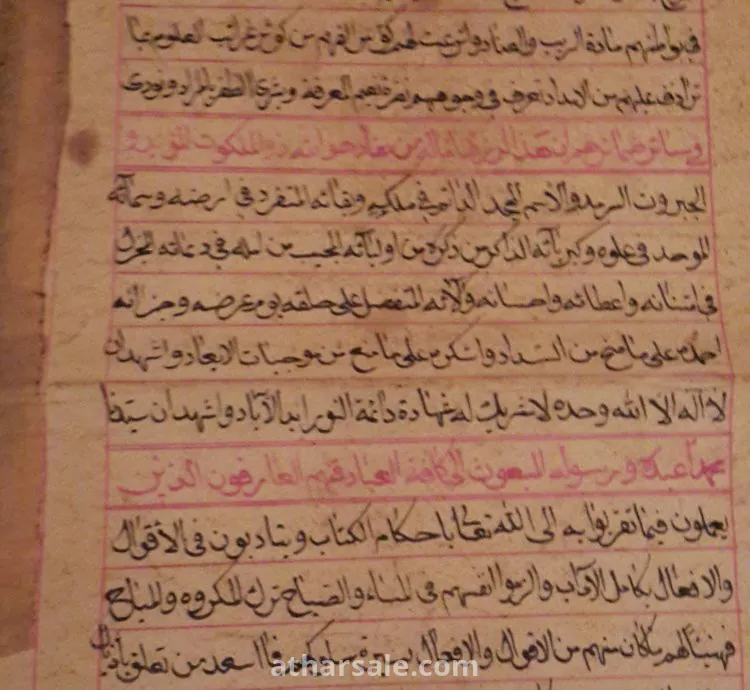 في بواطنهم مادة الريب والعناد واترعت لهم كؤس الفهم من كوثر غرائب العلوم بما
ترادف عليهم من الامداد تعرف في وجوههم نضرة نعيم المعرفة وبشرى الظفر بالمراد ونودي
الجبروت السرمد والاسم الممجد الدائم في ملكه وبقائه المتفرد في ارضه وسمائه
الموحد في علوه وكبريائه الذاكر من ذكره من اوليائه المجيب من امله في دعائه المجزل
في امتنانه واعطائه واحسانه وآلائه المتفضل على خلقه يوم عرضه وجزائه
احمده على ما منح من السداد واشكره على ما منع من موجبات الابعاد واشهد ان
لا اله الا الله وحده لا شريك له شهادة دائمة النور ابد الآباد واشهد ان سيدنا
محمدا عبده ورسوله المبعوث الى كافة العباد فمنهم العارفون الذين
يعملون فيما تقربوا به الى الله تعالى باحكام الكتاب ويتادبون في الاقوال
والافعال بكامل الآداب والزموا انفسهم في المساء والصباح ترك المكروه والمباح
فهنيئا لهم ما كان منهم من الاقوال والافعال فما اسعد من تعلق باذيال
atharsale.com